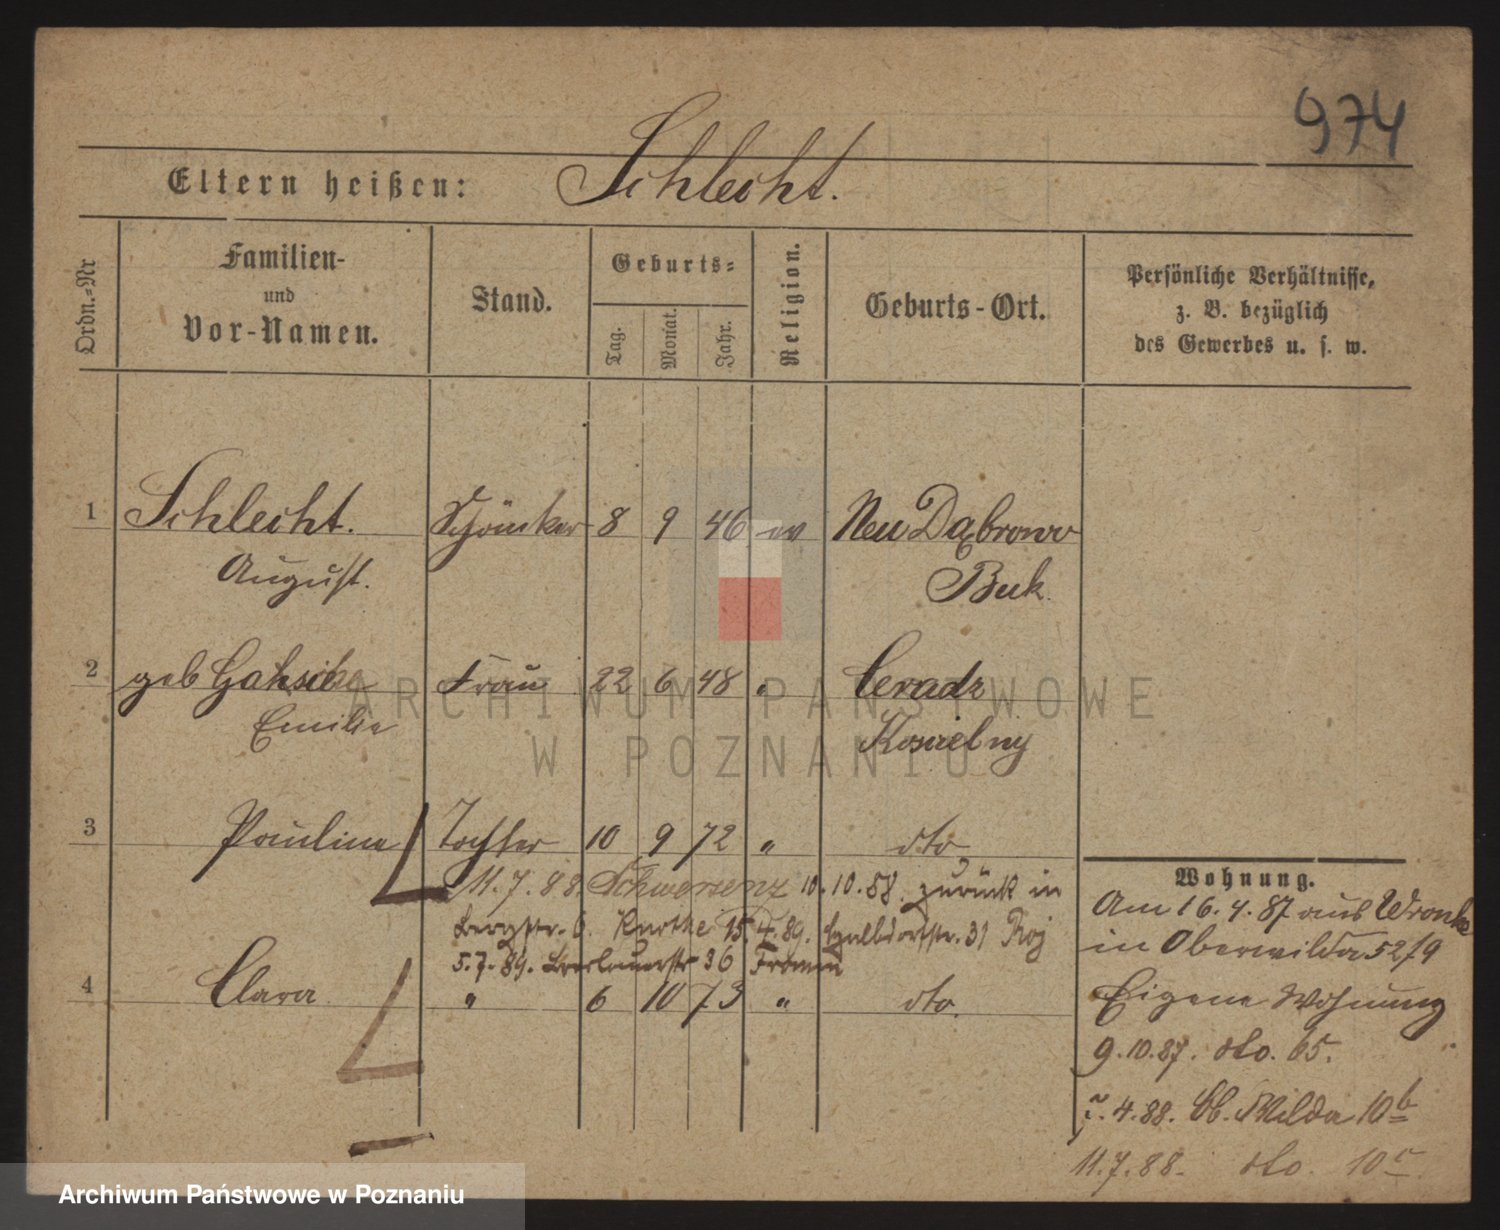 974
Eltern heißen: Schlecht.
Ordn.=Nr
Familien-
und
Vor-Namen.
Stand.
Geburts=
Tag.
Monat.
Jahr.
Religion.
Geburts-Ort.
Persönliche Verhältnisse,
z. B. bezüglich
des Gewerbes u. s. w.
1 Schlecht. 8 9 46 ev Neu Dąbrowo
August. Buk.
2 geb Frau 22 6 48 " Ceradz
Emilie Koscielny
3 Pauline Tochter 10 9 72 " dto
11.7.88. Schwersenz 10.10.88. zurück in
Bergstr. 6. 15.4.89. 31
5.7.89. Breslauerstr 36 Fromm
4 Clara " 6 10 73 " dto.
Wohnung.
Am 16.4.87 aus Wronke
in Oberwilda 52/9
Eigene Wohnung
9.10.87. dto. 65.
4.88. Ob. Wilda 10b
11.7.88. dto. 10c
ARCHIWUM PAŃSTWOWE
W POZNANIU
Archiwum Państwowe w Poznaniu